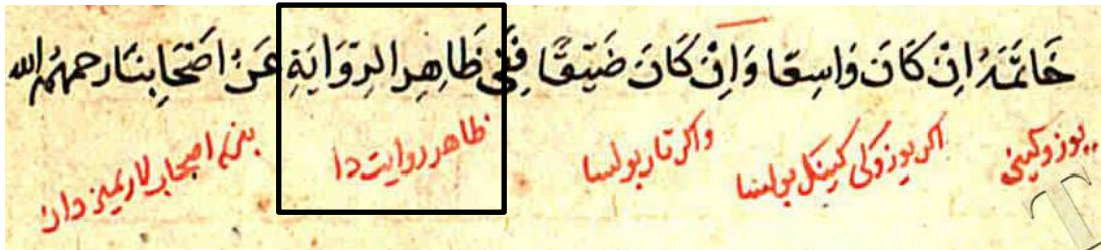 خَاتَمَهُ اِنْ كَانَ وَاسِعًا وَاِنْ كَانَ ضَيِّقًا فَفِي ظَاهِرِ الرِّوَايَةِ عَنْ اَصْحَابِنَا رحمهم الله
يوزوكينى اكر يوزوكى كينكل بولسا واكر تار بولسا ظاهر روايت دا بزنم اصحاب لاريميز دان
T